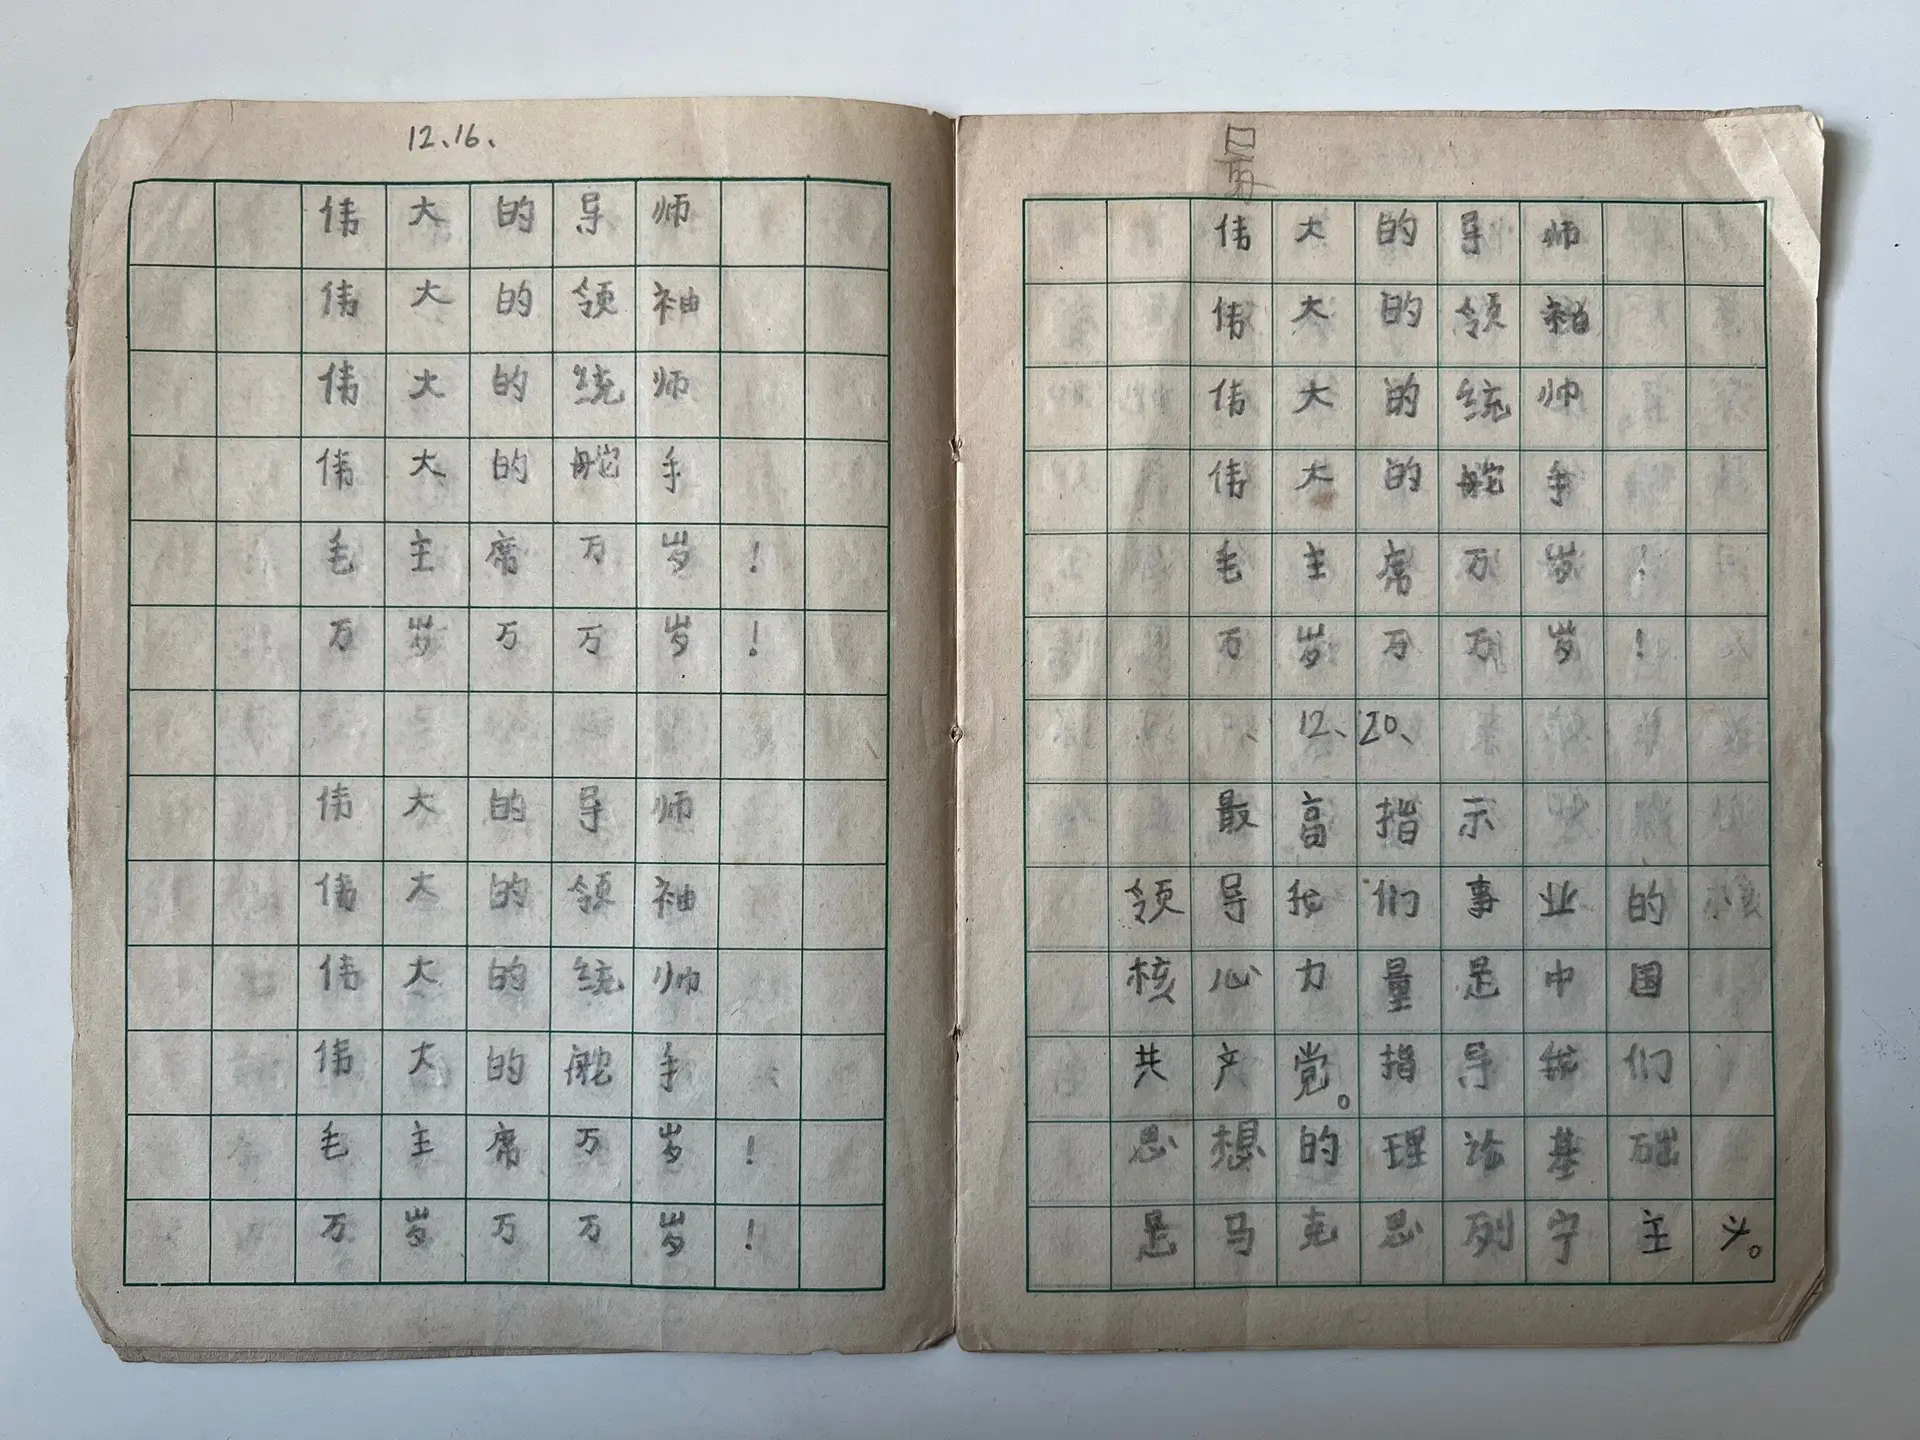 12、16、
伟大的导师
伟大的领袖
伟大的统帅
伟大的舵手
毛主席万岁!
万岁万万岁!
伟大的导师
伟大的领袖
伟大的统帅
伟大的舵手
毛主席万岁!
万岁万万岁!
伟大的导师
伟大的领袖
伟大的统帅
伟大的舵手
毛主席万岁!
万岁万万岁!
12、20、
最高指示
领导我们事业的
核心力量是中国
共产党。指导我们
思想的理论基础
是马克思列宁主义。